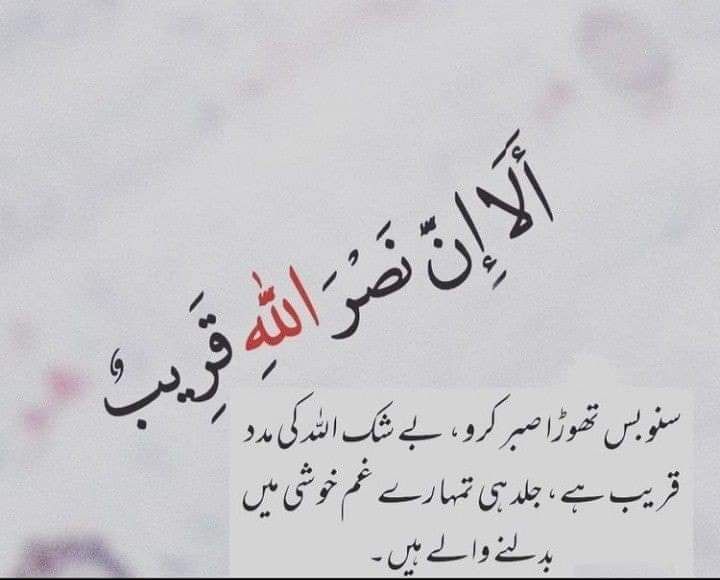 أَلَا إِنَّ نَصْرَ اللّٰهِ قَرِيبٌ
سنو بس تھوڑا صبر کرو، بے شک اللہ کی مدد
قریب ہے، جلد ہی تمہارے غم خوشی میں
بدلنے والے ہیں۔